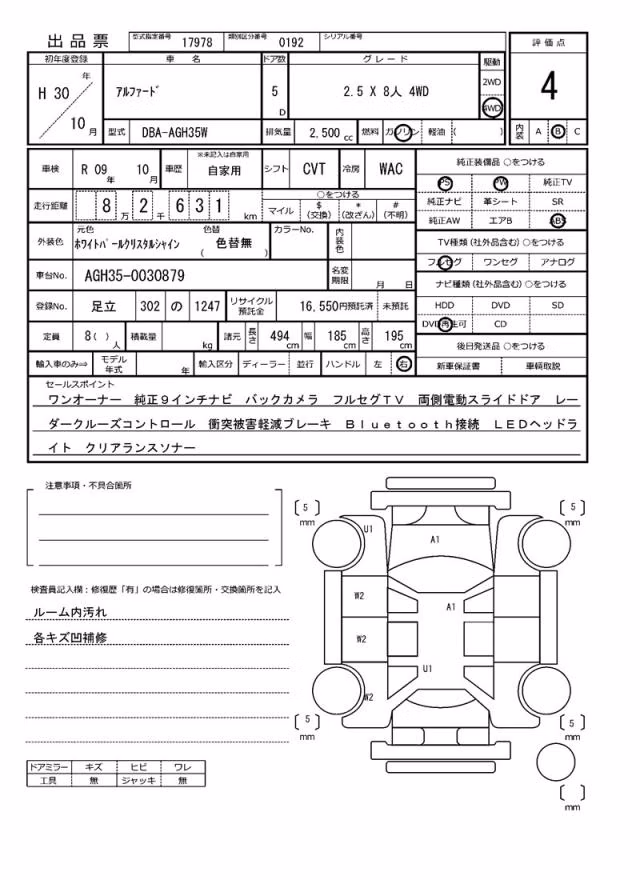 出品票 型式指定番号 17978 類別区分番号 0192 シリアル番号
評価点
4
初年度登録 車名 ドア数 グレード 駆動
H 30 年 10 月 アルファード 5 D 2.5 X 8人 4WD 2WD 4WD
型式 DBA-AGH35W 排気量 2,500 cc 燃料 ガソリン 軽油 ( ) 内装 A B C
車検 R 09 年 10 月 車歴 ※未記入は自家用 自家用 シフト CVT 冷房 WAC
走行距離 8 万 2 千 6 3 1 km ○をつける マイル $ (交換) * (改ざん) # (不明)
外装色 元色 ホワイトパールクリスタルシャイン 色替 ( 色替無 ) カラーNo. 内装色
車台No. AGH35-0030879 名変期限 月 日
登録No. 足立 302 の 1247 リサイクル預託金 16,550円預託済 未預託
定員 8( ) 人 積載量 kg 諸元 長さ 494 cm 幅 185 cm 高さ 195 cm
輸入車のみ⇒ モデル年式 年 輸入区分 ディーラー 並行 ハンドル 左 右
純正装備品 ○をつける
PS PW 純正TV
純正ナビ 革シート SR
純正AW エアB ABS
TV種類(社外品含む) ○をつける
フルセグ ワンセグ アナログ
ナビ種類(社外品含む) ○をつける
HDD DVD SD
DVD再生可 CD
後日発送品 ○をつける
新車保証書 車輌取説
セールスポイント
ワンオーナー 純正9インチナビ バックカメラ フルセグTV 両側電動スライドドア レー
ダークルーズコントロール 衝突被害軽減ブレーキ Bluetooth接続 LEDヘッドラ
イト クリアランスソナー
注意事項・不具合箇所
検査員記入欄：修復歴「有」の場合は修復箇所・交換箇所を記入
ルーム内汚れ
各キズ凹補修
ドアミラー キズ ヒビ ワレ
工具 無 ジャッキ 無
[ 5 ] mm
[ 5 ] mm
U1
A1
W2
A1
W2
U1
W2
[ 5 ] mm
[ 5 ] mm
[ ] mm